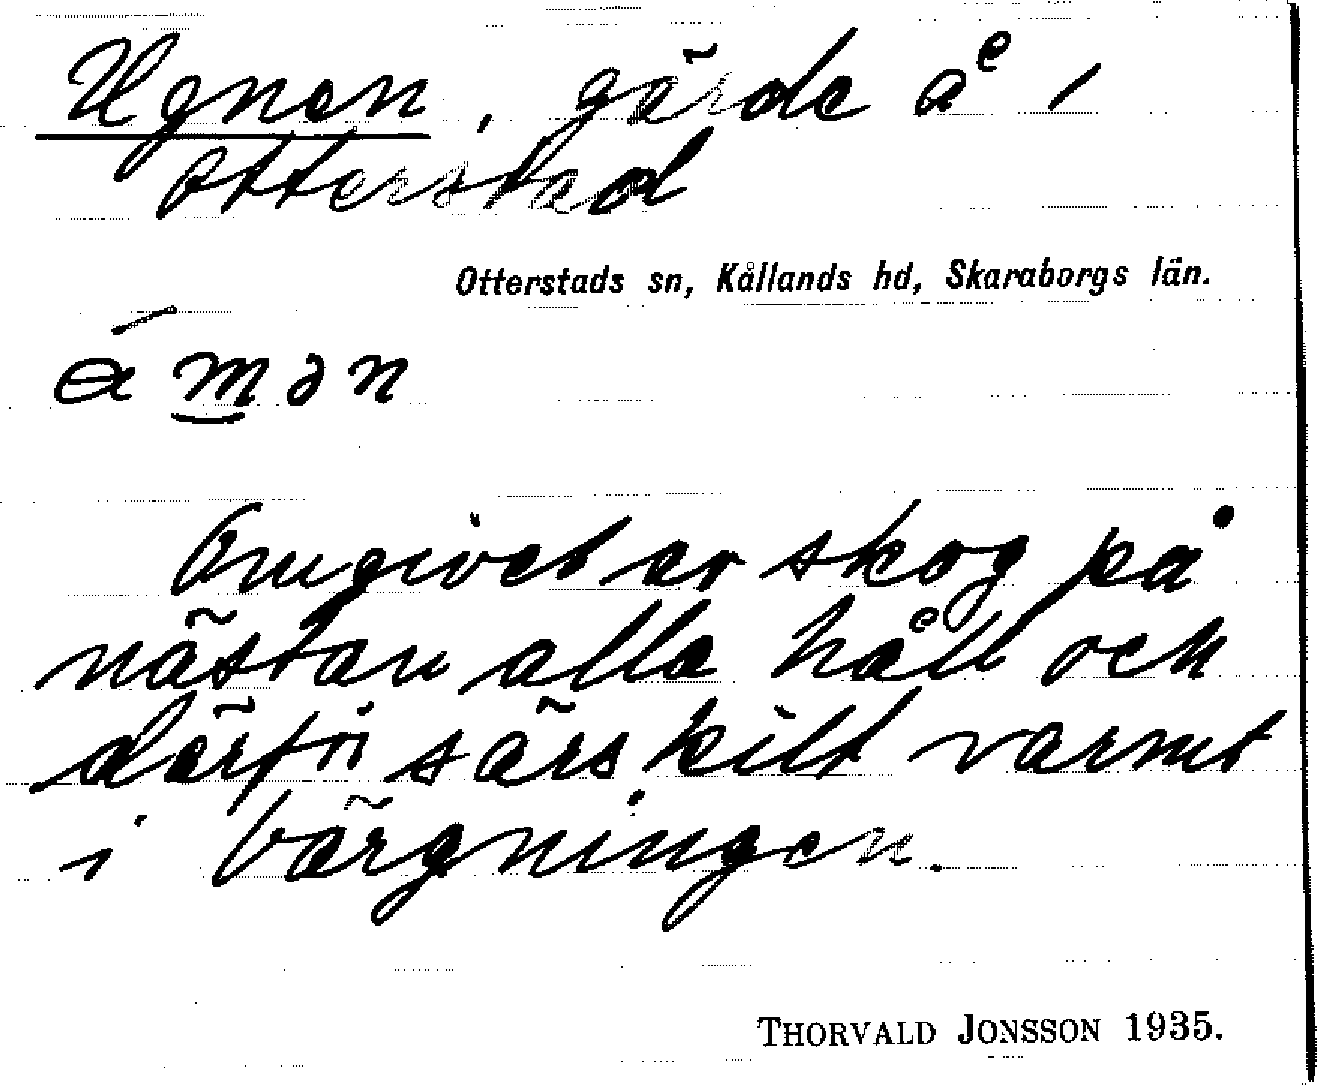 Ugnen, gärde å 1
Otterstad
Otterstads sn, Kållands hd, Skaraborgs län.
Omgivet er skog på
nästan alla håll och
därför särskilt varmt
i bärgningen.
THORVALD JONSSON 1935.